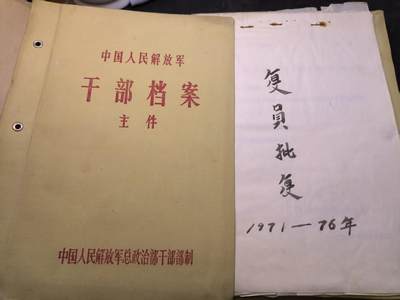 中国人民解放军
干部档案
主件
中国人民解放军总政治部干部部制
复員批复
1971—76年